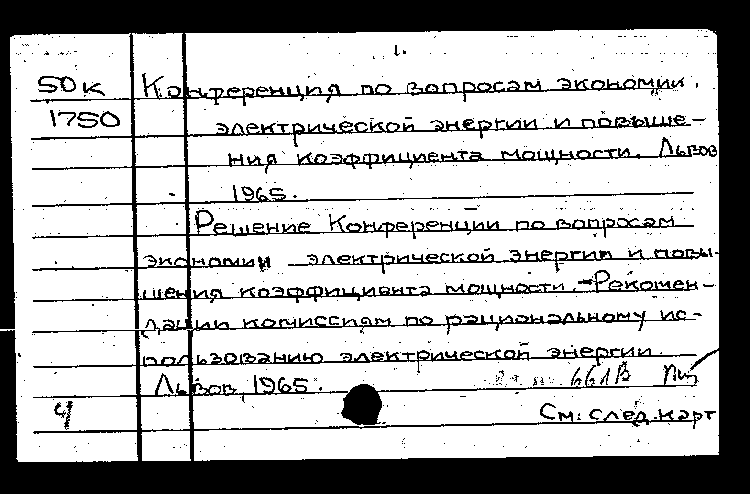 1.
50к Конференция по вопросам экономии
1750 электрической энергии и повыше-
ния коэффициента мощности. Львов
1965.
Решение Конференции по вопросам
экономии электрической энергии и повы-
шения коэффициента мощности. – Рекомен-
дации комиссиям по рациональному ис-
пользованию электрической энергии.
Львов, 1965. 661В
4 См: след. карт